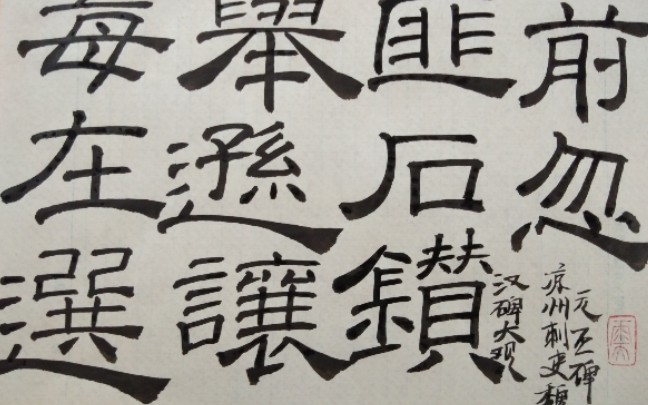 每在選
舉遜讓
匪石鑽
前忽
汉碑大观
凉州刺史魏
元丕碑